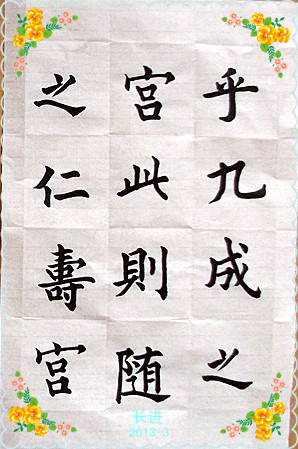 乎九成之
宮此則随
之仁壽宮
长进
2013-3